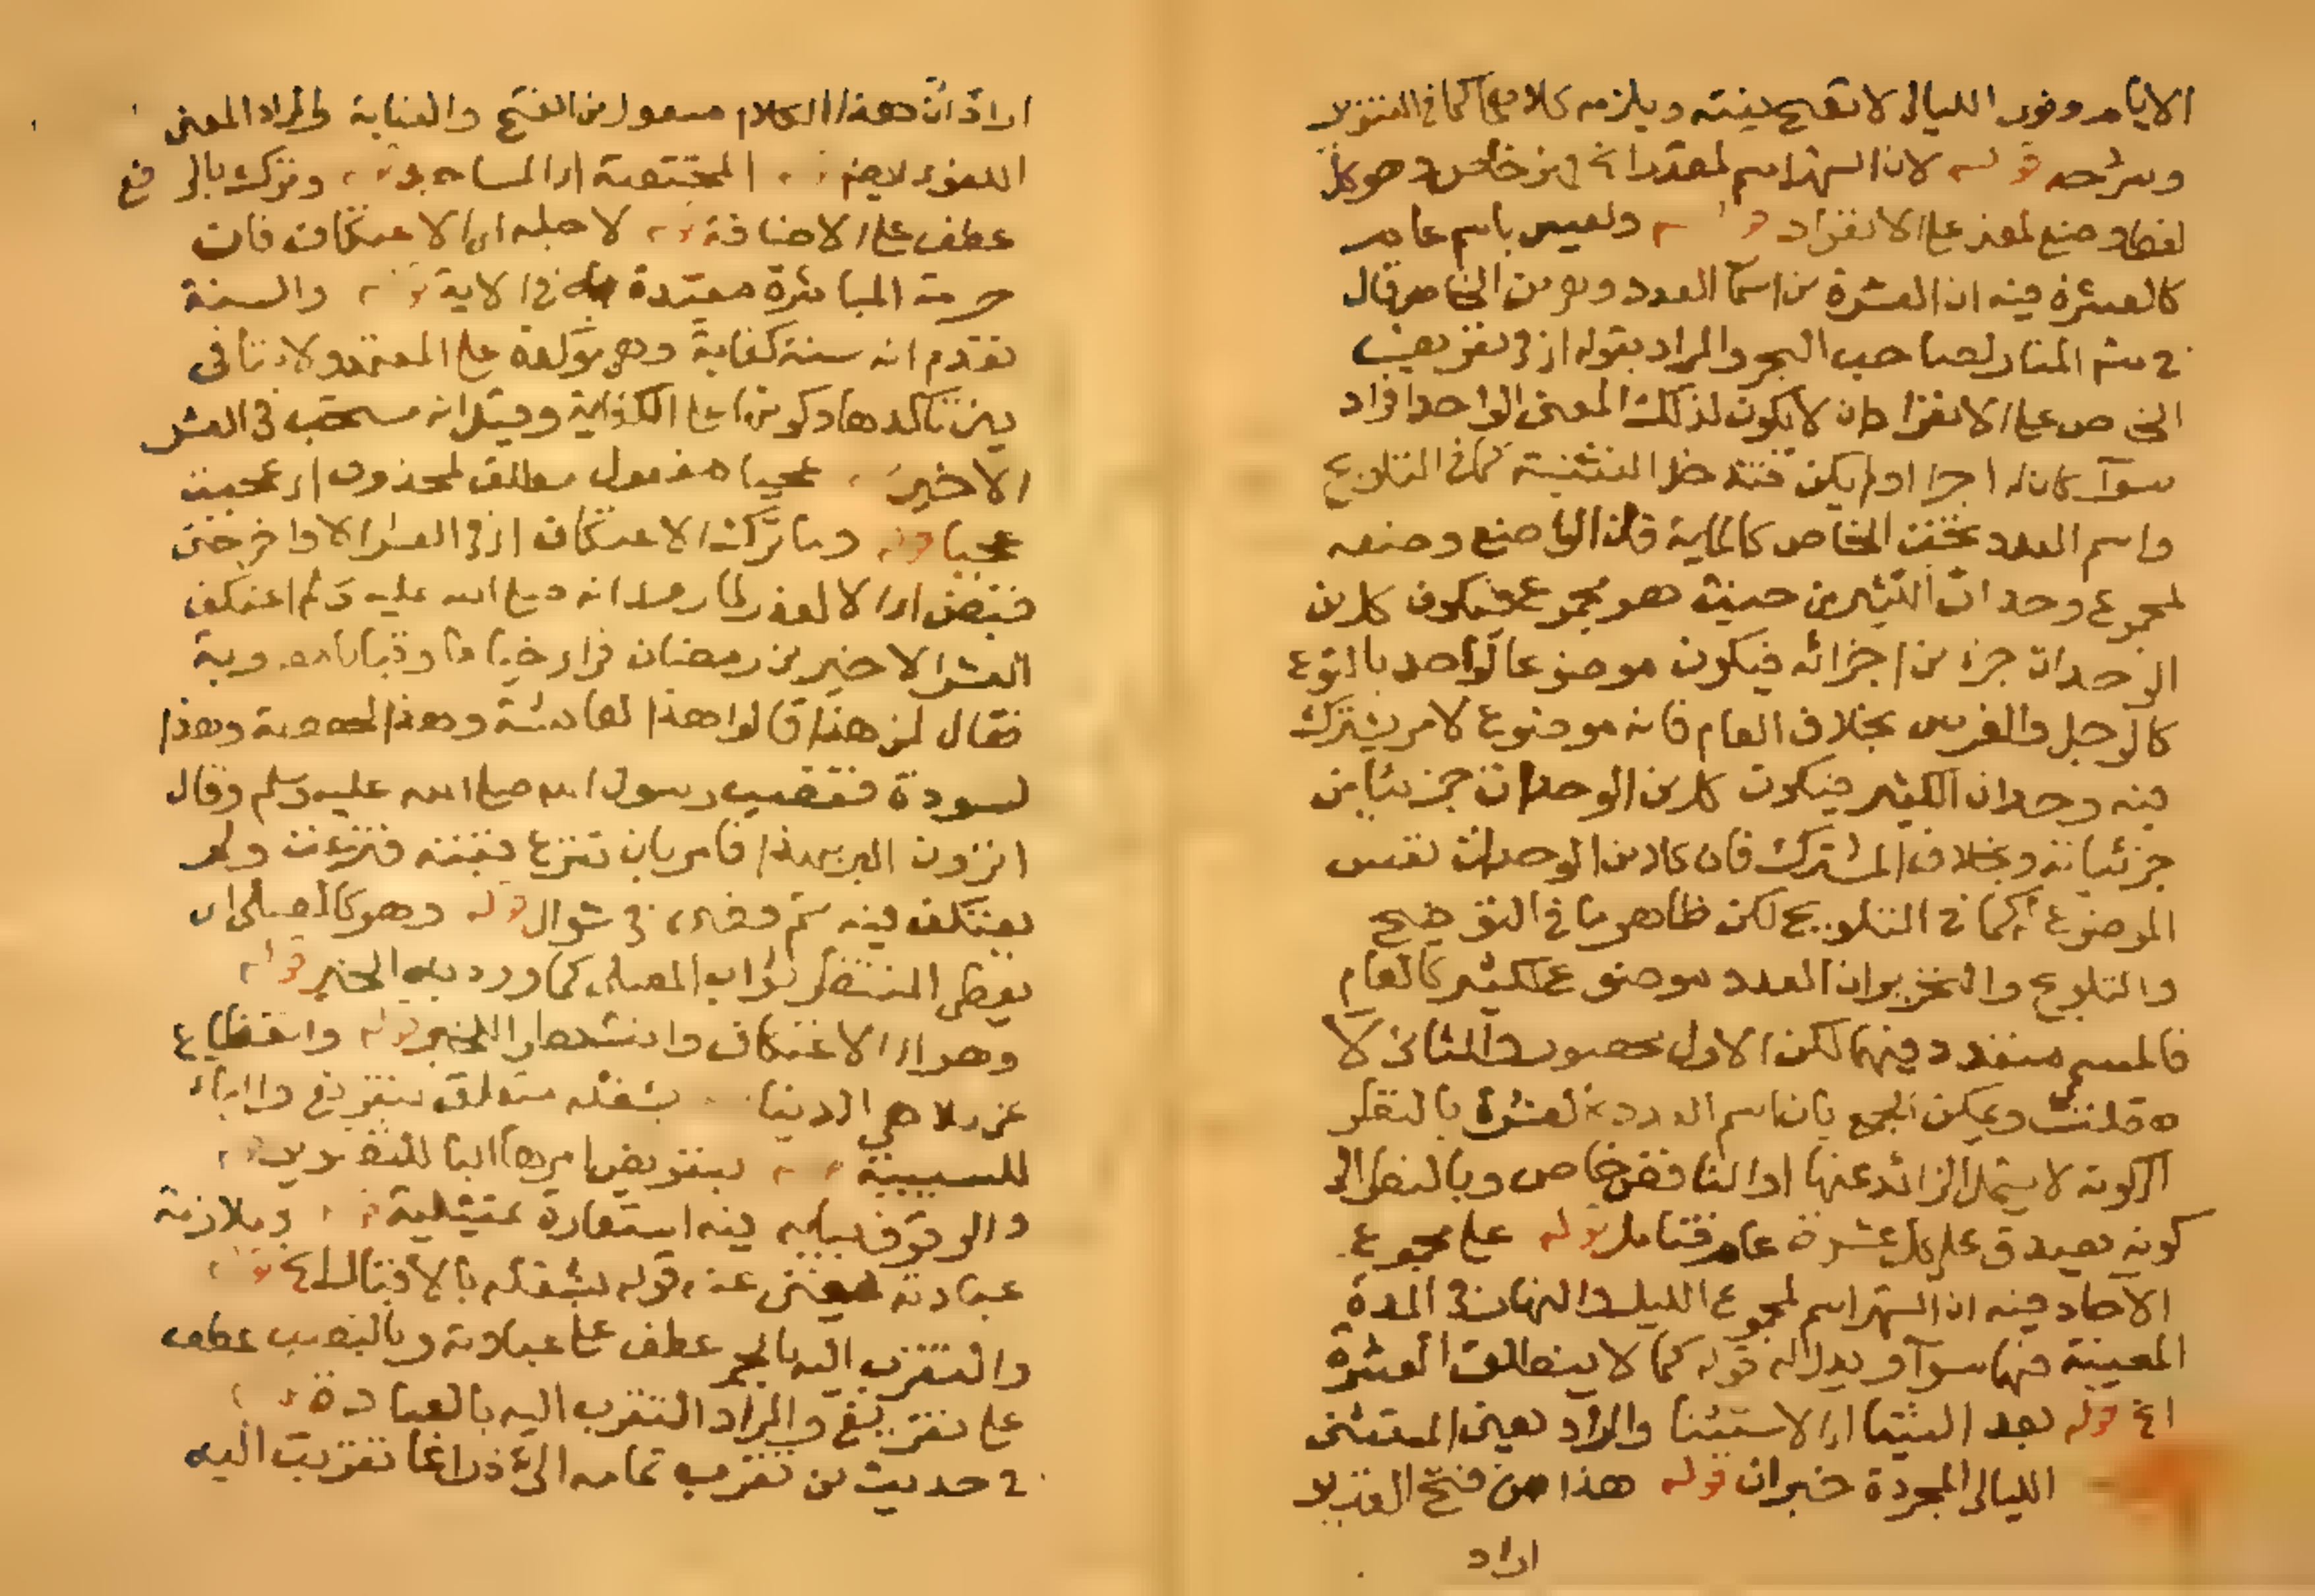 الايام دون الليالى لا تصح نيته ويلزمه كلاهما كما فى التنوير
وشرحه قوله لان الشهر اسم لمقدر الخ اى خاص وهو كل
لفظ وضع لمعنى على الانفراد قوله وليس باسم عام
كالعشرة فيه ان العشرة من اسما العدد وهو من الخاص قال
فى شرح المنار لصاحب البحر والمراد بقوله اى فى تعريف
الخاص على الانفراد ان لا يكون لذلك المعنى الواحد افراد
سوآ كان له اجزا او لم يكن فتدخل التثنية كما فى التلويح
واسم العدد الخاص كالماية فان الواضع وضعه
لمجموع وحدات الكثير من حيث هو مجموع فيكون كل من
الوحدات جزء من اجزائه فيكون موضوعا لواحد بالنوع
كالرجل والفرس بخلاف العام فانه موضوع لامر يشترك
فيه وحدان الكثير فيكون كل من الوحدات جزئيا من
جزئياته وبخلاف المشترك فان كلا من الوحدات نفس
الموضوع له كما فى التلويح لكن ظاهر ما فى التوضيح
والتلويح والتحرير ان العدد موضوع لكثير كالعام
فالمسمى متعدد فيهما لكن الاول محصور والثانى لا
ه قلت ويمكن الجمع بان اسم العدد كالعشرة بالنظر
الى كونه لا يشمل الزائد عنها او الناقص خاص وبالنظر الى
كونه يصدق على كل عشرة عام فتامل قوله على مجموع
الاحاد فيه ان الشهر اسم لمجموع الليل والنهار فى المدة
المعينة فهما سوآ ويدل له قوله كما لا ينطلق العشرة
الخ قوله بعد الثنيا اى الاستثنا والمراد بعين المستثنى
الليالى المجردة خبر ان قوله هذا من فتح القدير
اراد
اراد ان هذا الكلام منقول من الفتح والعناية والمراد المعنى
اللغوى المختصة اى المساجد وتركه بالرفع
عطف على الاضافة لاجله اى الاعتكاف فان
حرمة المباشرة مقيدة به فى الاية والسنة
تقدم انه سنة كفاية وهى مؤكدة على المعتمد ولا تنافى
بين تاكدها وكونها على الكفاية وقيل انه مستحب فى العشر
الاخير عجبا مفعول مطلق لمحذوف اى عجبت
عجبا قوله وما ترك الاعتكاف اى فى العشر الاواخر حتى
قبض اى الا لعذر لما روى انه صلى الله عليه وسلم اعتكف
العشر الاخير من رمضان فراى خياما وقبابا مضروبة
فقال لمن هذا قالوا هذا لعائشة وهذا لحفصة وهذا
لسودة فغضب رسول الله صلى الله عليه وسلم وقال
اترون البر بهذا فامر بان تنزع قبته فنزعت ولم
يعتكف فيه ثم قضى فى شوال قوله وهو كالمصلى اى
يعطى المنتظر ثواب المصلى كما ورد به الخبر قوله
وهو اى الاعتكاف وانتظار الخير قوله وانقطاع
عن ملاهى الدنيا بشغله متعلق بتفريغ والباء
للسببية بتفويض امرها البا للتصوير
والوقوف ببابه فيه استعارة تمثيلية وملازمة
عبادته يغنى عنه قوله بشغله بالاقبال الخ قوله
والتقرب اليه بالجر عطف على عبادته وبالنصب عطف
على تفريغ والمراد التقرب اليه بالعبادة
فى حديث من تقرب تمامه الى ذراعا تقربت اليه